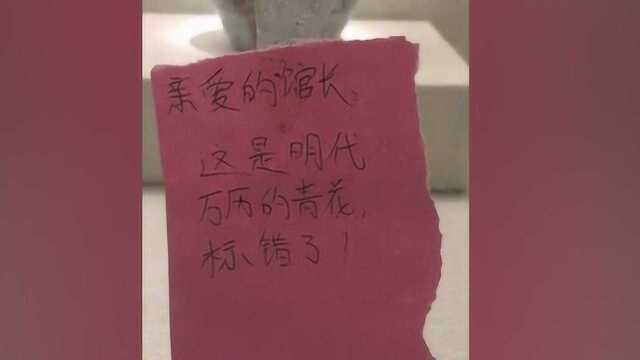 亲爱的馆长
这是明代
万历的青花,
标错了!